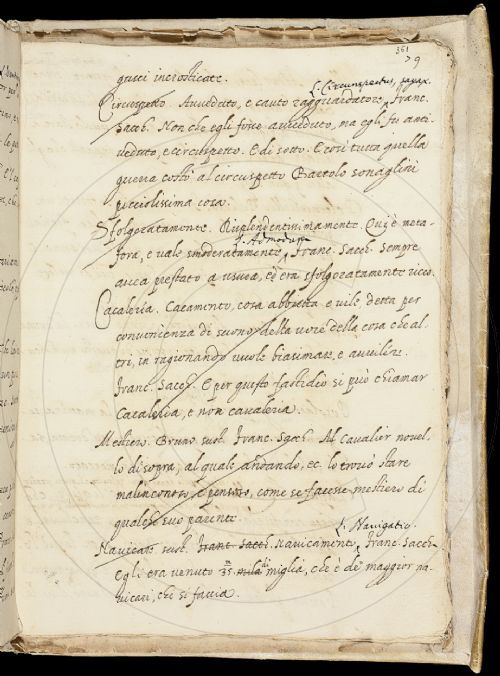 361
79
gusci incrosticate.
L. Circunspectus, sagax.
Circuspetto. Avveduto, e cauto ragguardatore, Franc.
Sacch. Non che egli fosse avveduto, ma egli fu anti-
veduto, e circuspetto. E di sotto. E così tutta quella
guerra costò al circuspetto Bartolo sonaglini
picciolissima cosa.
Sfolgoratamente. Risplendentissimamente. Qui è meta-
L. Admodum
fora, e vale smoderatamente, Franc. Sacch. Sempre
avea prestato a usura, ed era sfolgoratamente ricco.
Cacaleria. Cacamento, cosa abbietta e vile, detta per
convenienza di suono della voce della cosa che al-
tri, in ragionando vuole biasimare, e avvilire.
Franc. Sacch. E per questo fastidio si può chiamar
Cacaleria, e non cavaleria.
Mestiero. Bruno suol. Franc. Sacch. Al Cavalier novel-
lo di sopra, al quale andando, ec. lo trovò stare
malinconoso e pensoso, come se facesse mestiero di
qualche suo parente.
L. Navigatio.
Navicare sust. Franc. Sacch. Navicamento, Franc. Sacch.
Egli era venuto 35 mila miglia, che è de maggior na-
vicari, che si faccia.